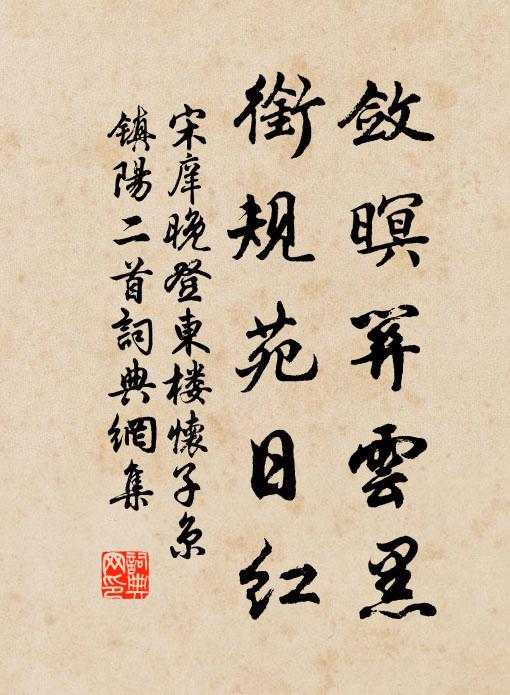 斂暝笄雲黑
銜規苑日紅
宋庠晚登東樓懷子京
鎮陽二首詞典網集
詞典网印